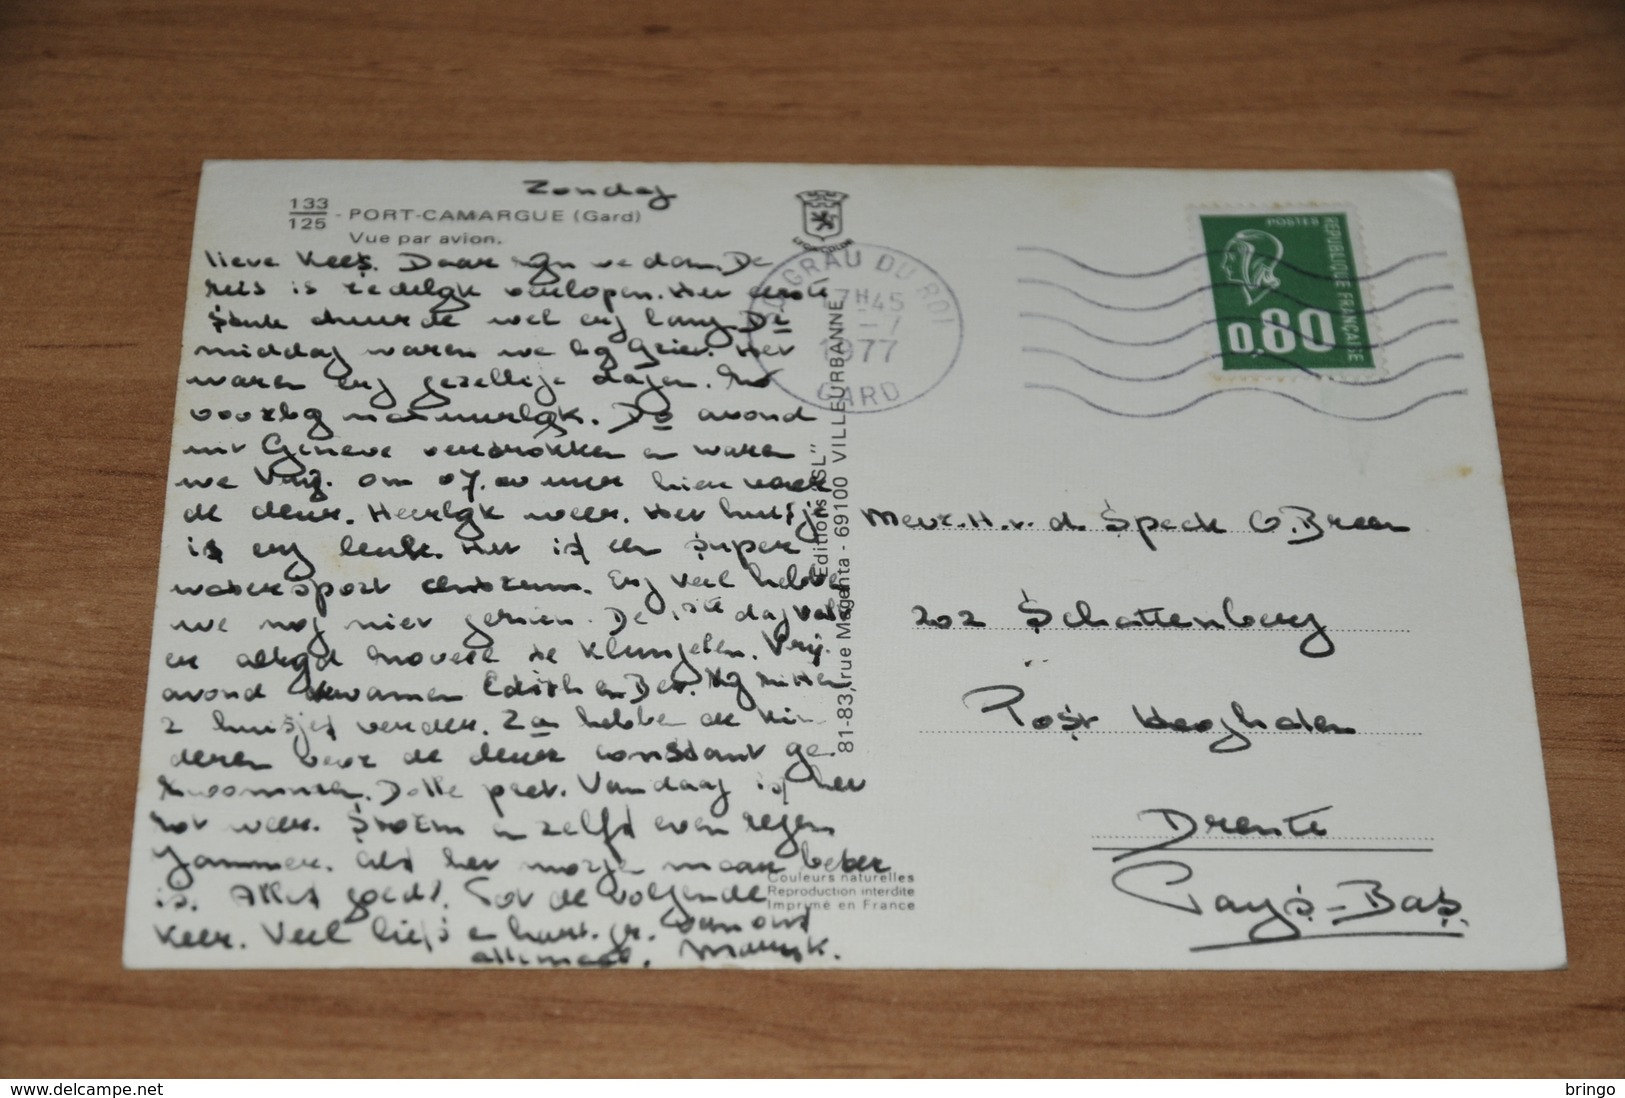 Zondag
133
125 - PORT-CAMARGUE (Gard)
Vue par avion.
lieve Kees. Daar zijn we dan. De
reis is redelijk verlopen. Het eerste
stuk duurde wel erg lang. De
middag waren we bij Griet. Het
waren erg gezellige dagen.
voorbij natuurlijk. De avond
uit Geneve vertrokken en waren
we Vrij. om 07.00 uur hier voor
de deur. Heerlijk weer. Het huisje
is erg leuk. Het is een super
watersport centrum. Erg veel hebben
we nog niet gezien. De 1ste dag valt
er altijd zoveel te
avond kwamen Edith en Bev. Zij zitten
2 huisjes verder. Za hebben de kin
deren voor de deur constant ge
zwommen. Dolle pret. Vandaag is het
rot weer. Storm en zelfs even regen
Jammer. Als het morgen maar beter
is. Alles goeds. Tot de volgende
keer. Veel liefs en hart. gr. van ons
allemaal. 
LYONCOLOR
LE GRAU DU ROI
17H45
-7
1977
GARD
Editions "SL"
81-83, rue Magenta - 69100 VILLEURBANNE
Couleurs naturelles
Reproduction interdite
Imprimé en France
POSTES
REPUBLIQUE FRANÇAISE
0,80
Mevr. H. v. d. Speck O. Breen
202 Schattenberg
Post Hooghalen
Drente
Pays-Bas.
www.delcampe.net
bringo